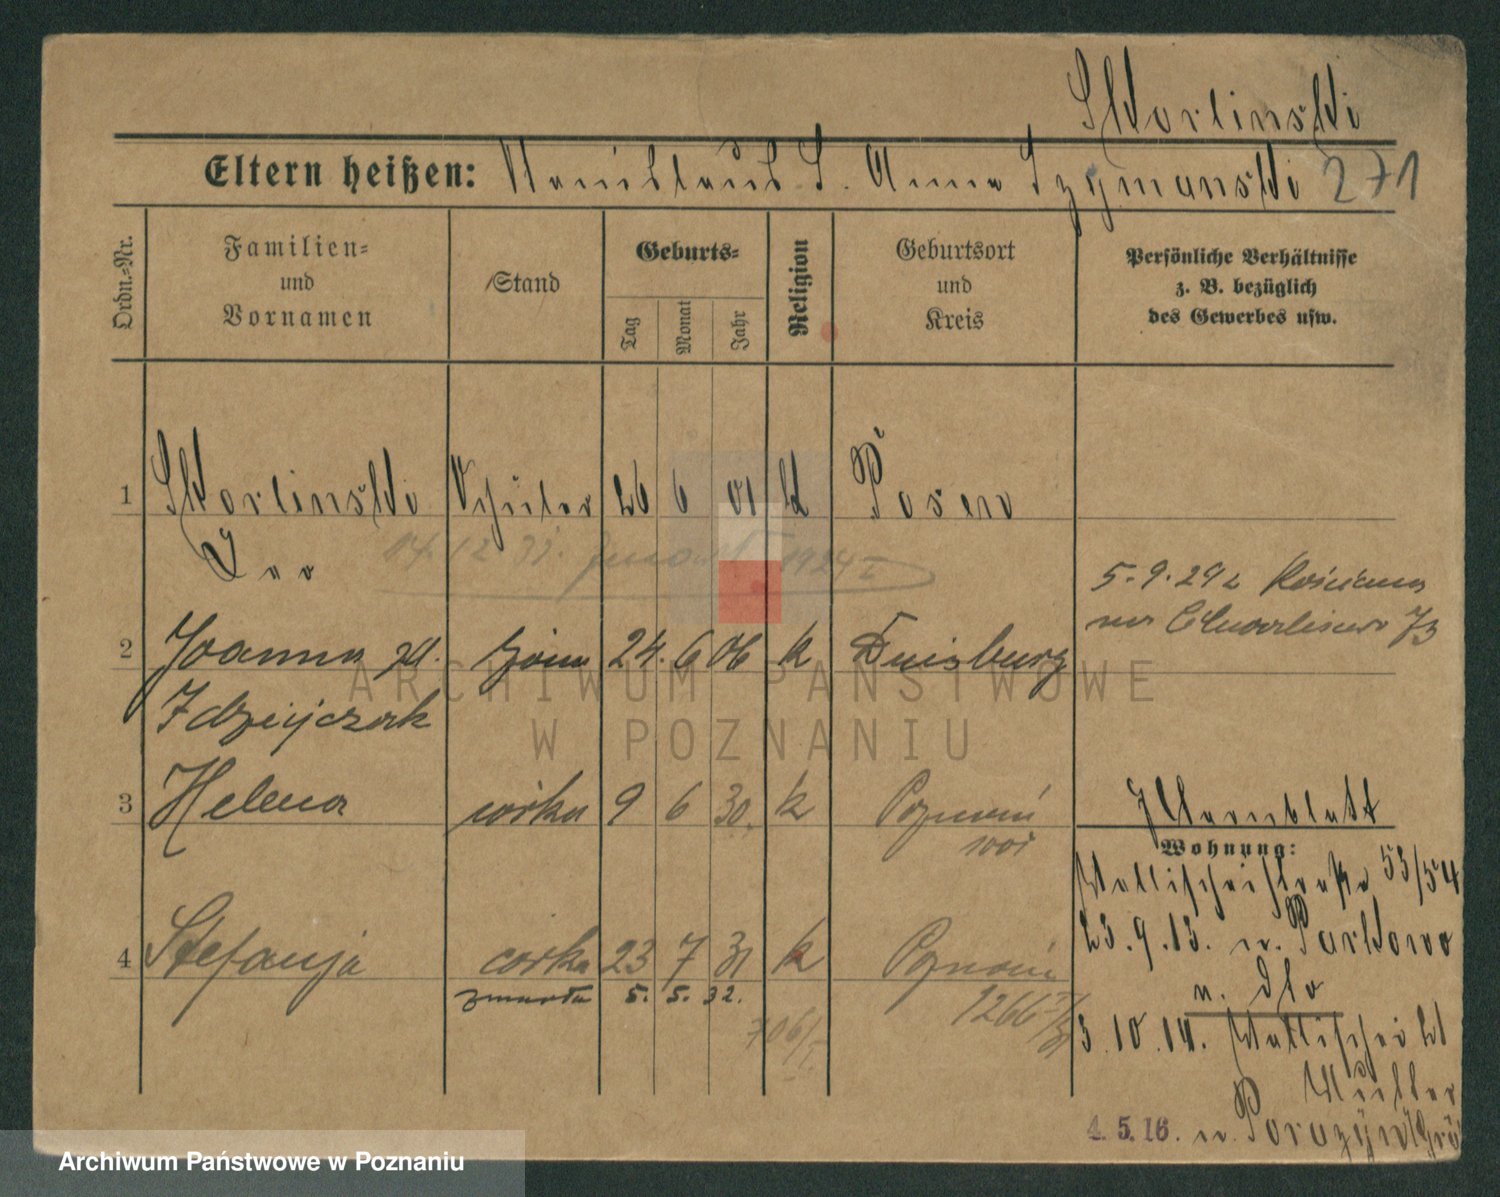 Skorlinski
Eltern heißen: Stanislaus S. Anna Szymanski 271
Ordn.-Nr.
Familien-
und
Vornamen
Stand
Geburts-
Tag
Monat
Jahr
Religion
Geburtsort
und
Kreis
Persönliche Verhältnisse
z. B. bezüglich
des Gewerbes usw.
1 Skorlinski Schüler 26 6 01 k Posen
Leo
04. 12 33. 1924 I
5. 9. 29 z Kościana
73
2 Joanna żona 24. 6 06 k Duisburg
Idziejczak
3 Helena córka 9 6 30. k Poznań
1001
4 Stefanja córka 23 7 31 k Poznań
zmarła 5. 5. 32. 1266
706/I
Wohnung:
Wallischeistraße 53/54
23. 9. 13. n. Parkowo
n. dto
3. 10. 14. Wallischei
Mutter
4. 5. 16. n.
ARCHIWUM PAŃSTWOWE
W POZNANIU
Archiwum Państwowe w Poznaniu